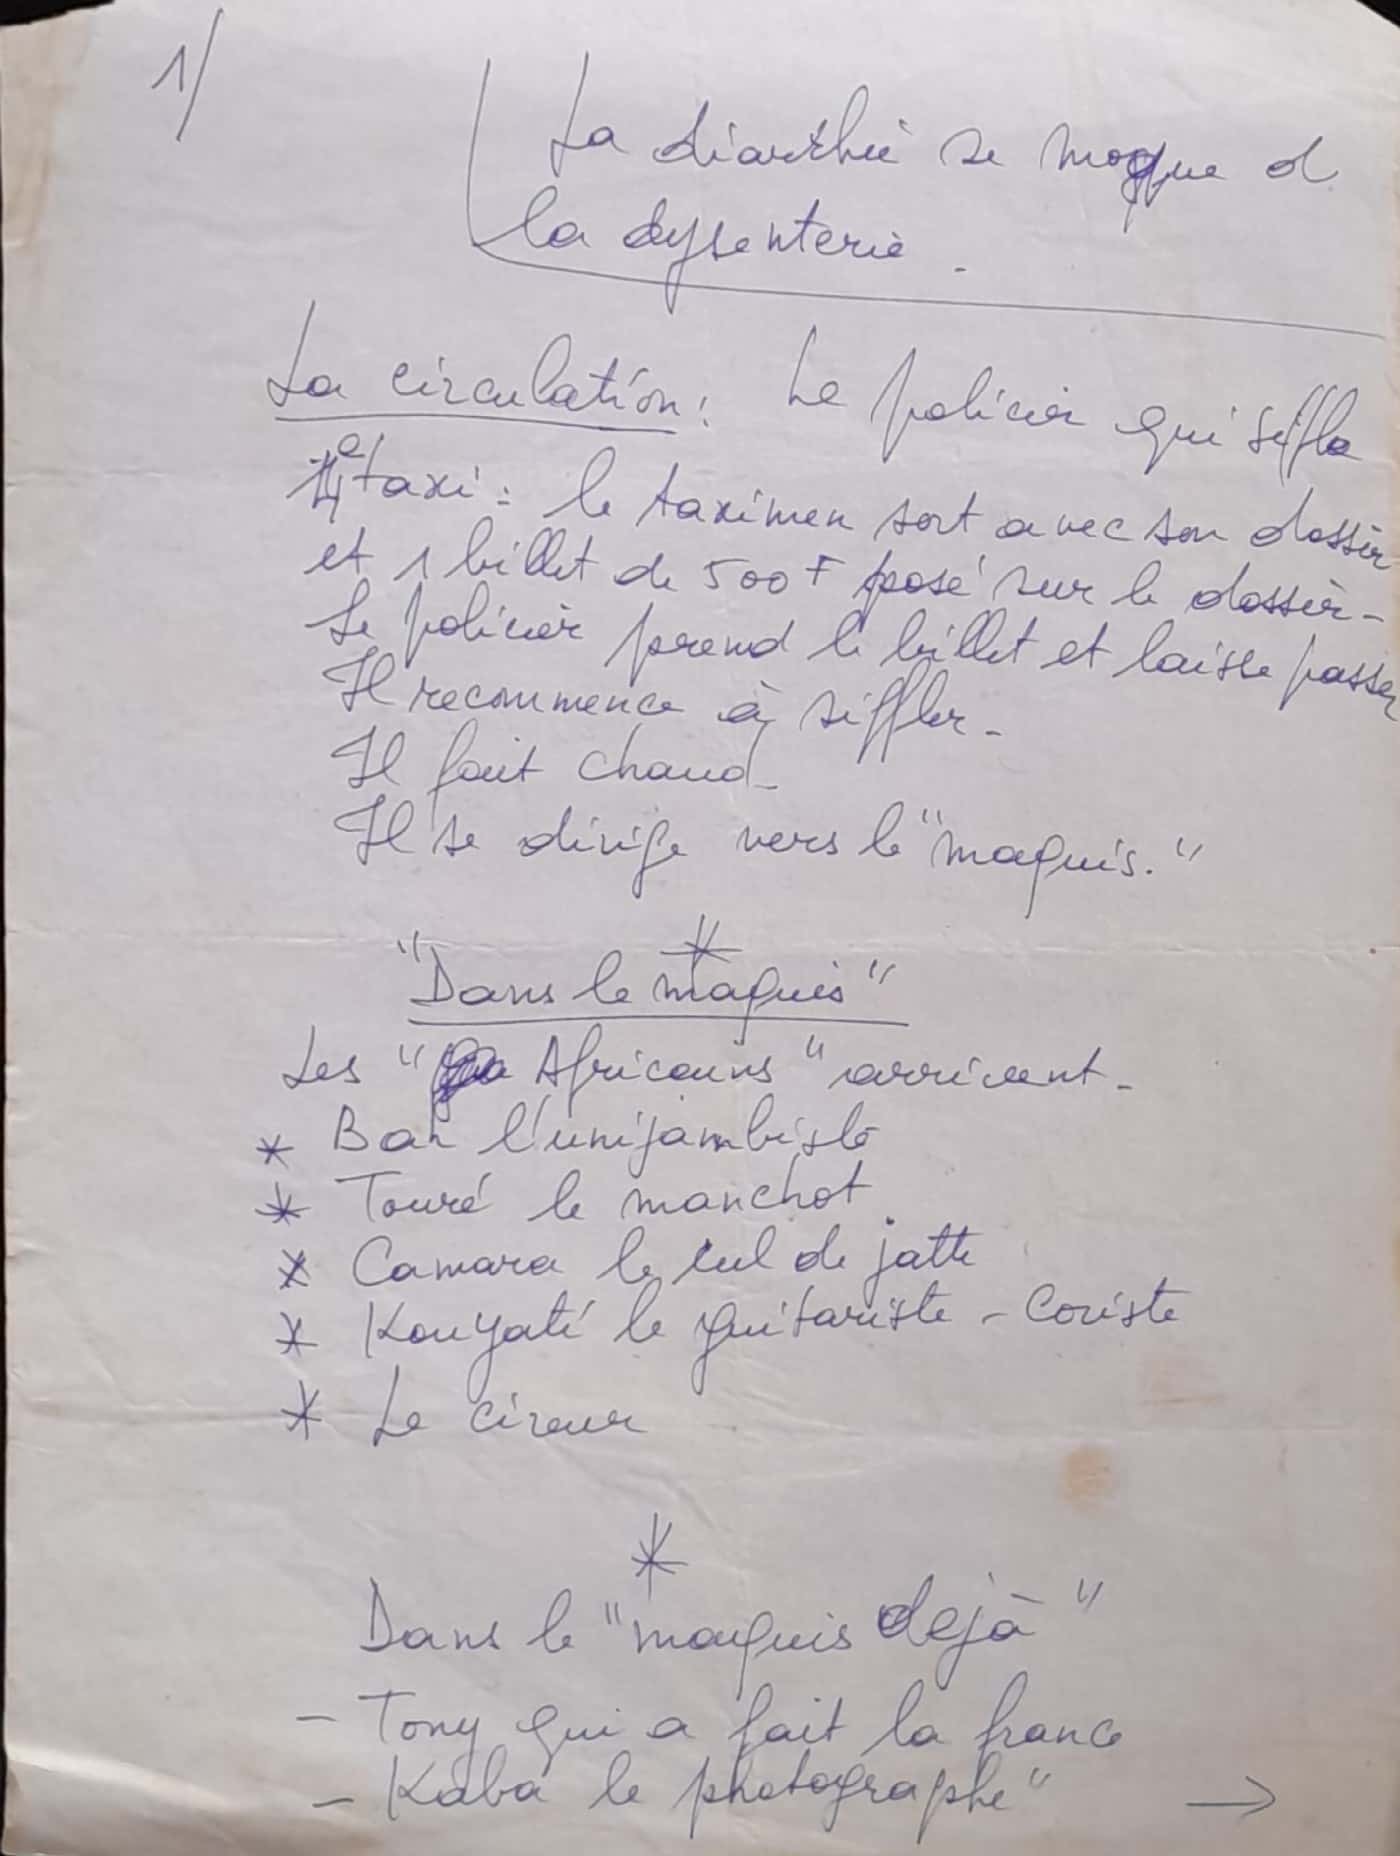 1/
La diarrhée se moque d
la dysenterie.
La circulation: Le policier qui siffle
taxi: le taximen sort avec son dossier
et 1 billet de 500F posé sur le dossier-
Le policier prend le billet et laisse passer
Il recommence à siffler-
Il fait chaud-
Il se dirige vers le "maquis."
*
"Dans le maquis"
Les " Africains" arrivent-
* Bah l'unijambiste
* Touré le manchot
* Camara le cul de jatte
* Kouyaté le guitariste - Coriste
* Le cireur
*
Dans le "maquis dejà"
- Tony qui a fait la france
- Kaba le photographe" →